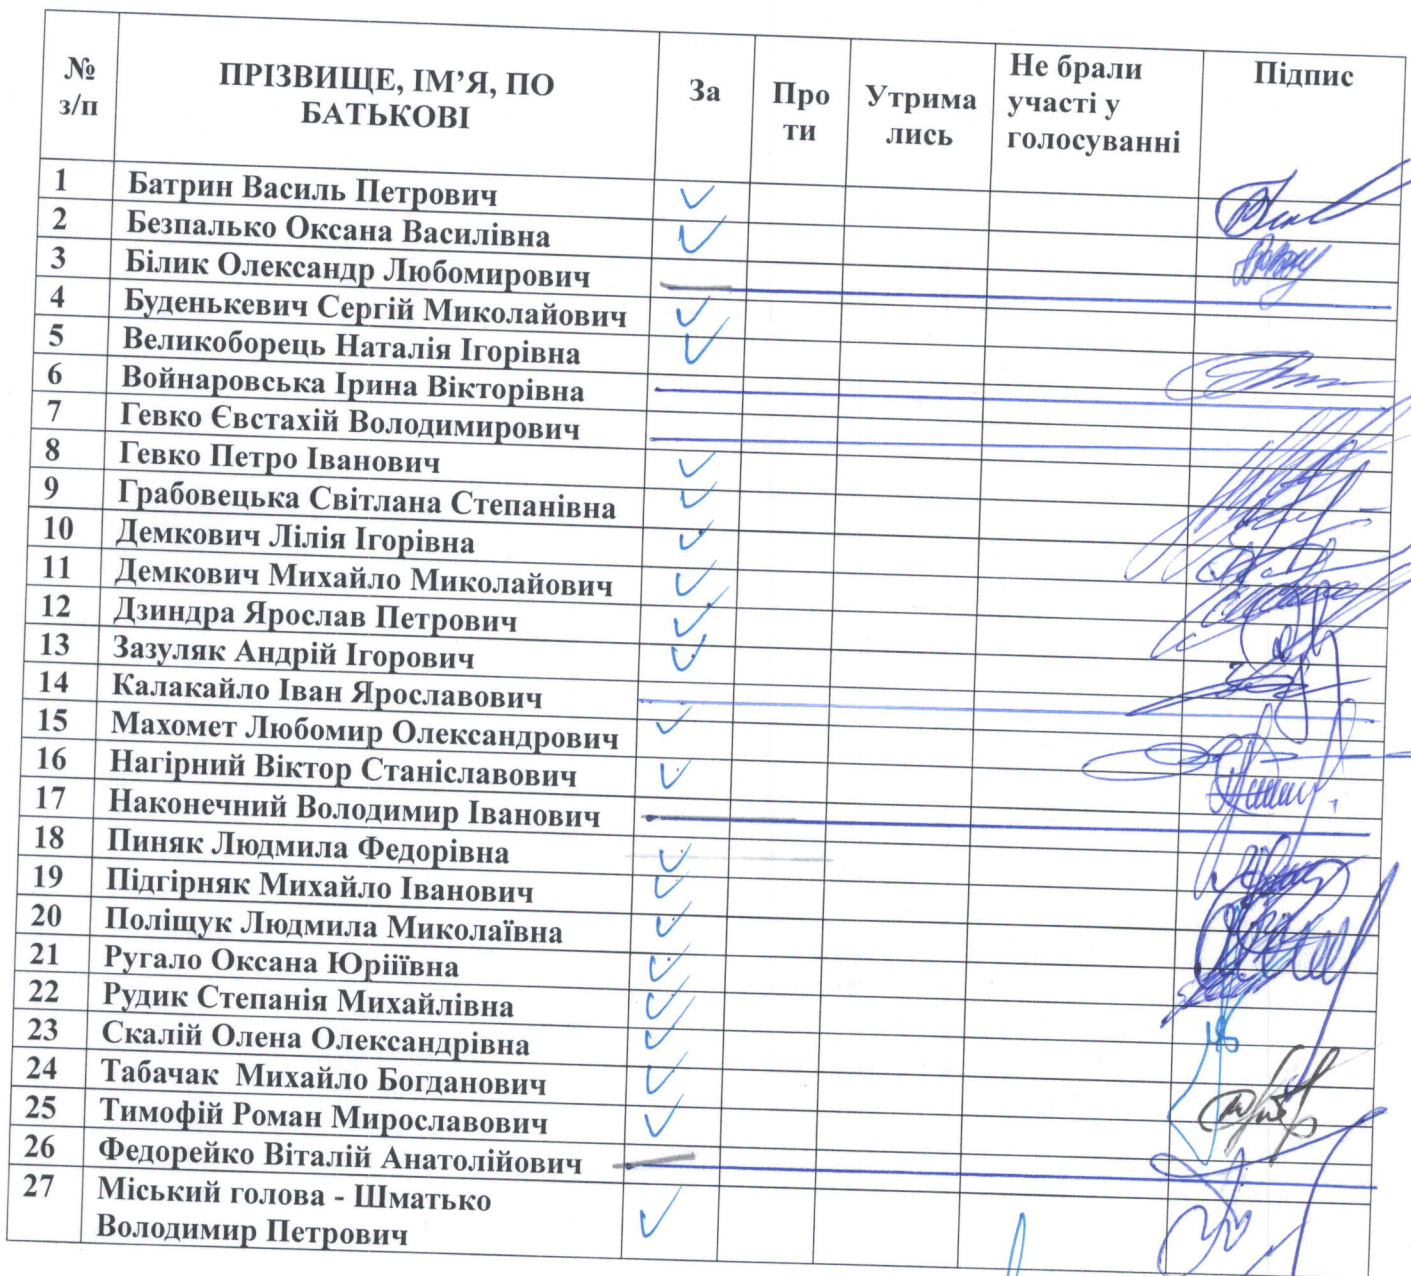 № з/п ПРІЗВИЩЕ, ІМ’Я, ПО БАТЬКОВІ За Про ти Утрима лись Не брали участі у голосуванні Підпис
1 Батрин Василь Петрович ✓
2 Безпалько Оксана Василівна ✓
3 Білик Олександр Любомирович
4 Буденькевич Сергій Миколайович ✓
5 Великоборець Наталія Ігорівна ✓
6 Войнаровська Ірина Вікторівна
7 Гевко Євстахій Володимирович
8 Гевко Петро Іванович ✓
9 Грабовецька Світлана Степанівна ✓
10 Демкович Лілія Ігорівна ✓
11 Демкович Михайло Миколайович ✓
12 Дзиндра Ярослав Петрович ✓
13 Зазуляк Андрій Ігорович ✓
14 Калакайло Іван Ярославович
15 Махомет Любомир Олександрович ✓
16 Нагірний Віктор Станіславович ✓
17 Наконечний Володимир Іванович
18 Пиняк Людмила Федорівна ✓
19 Підгірняк Михайло Іванович ✓
20 Поліщук Людмила Миколаївна ✓
21 Ругало Оксана Юріїївна ✓
22 Рудик Степанія Михайлівна ✓
23 Скалій Олена Олександрівна ✓
24 Табачак Михайло Богданович ✓
25 Тимофій Роман Мирославович ✓
26 Федорейко Віталій Анатолійович
27 Міський голова - Шматько
Володимир Петрович ✓